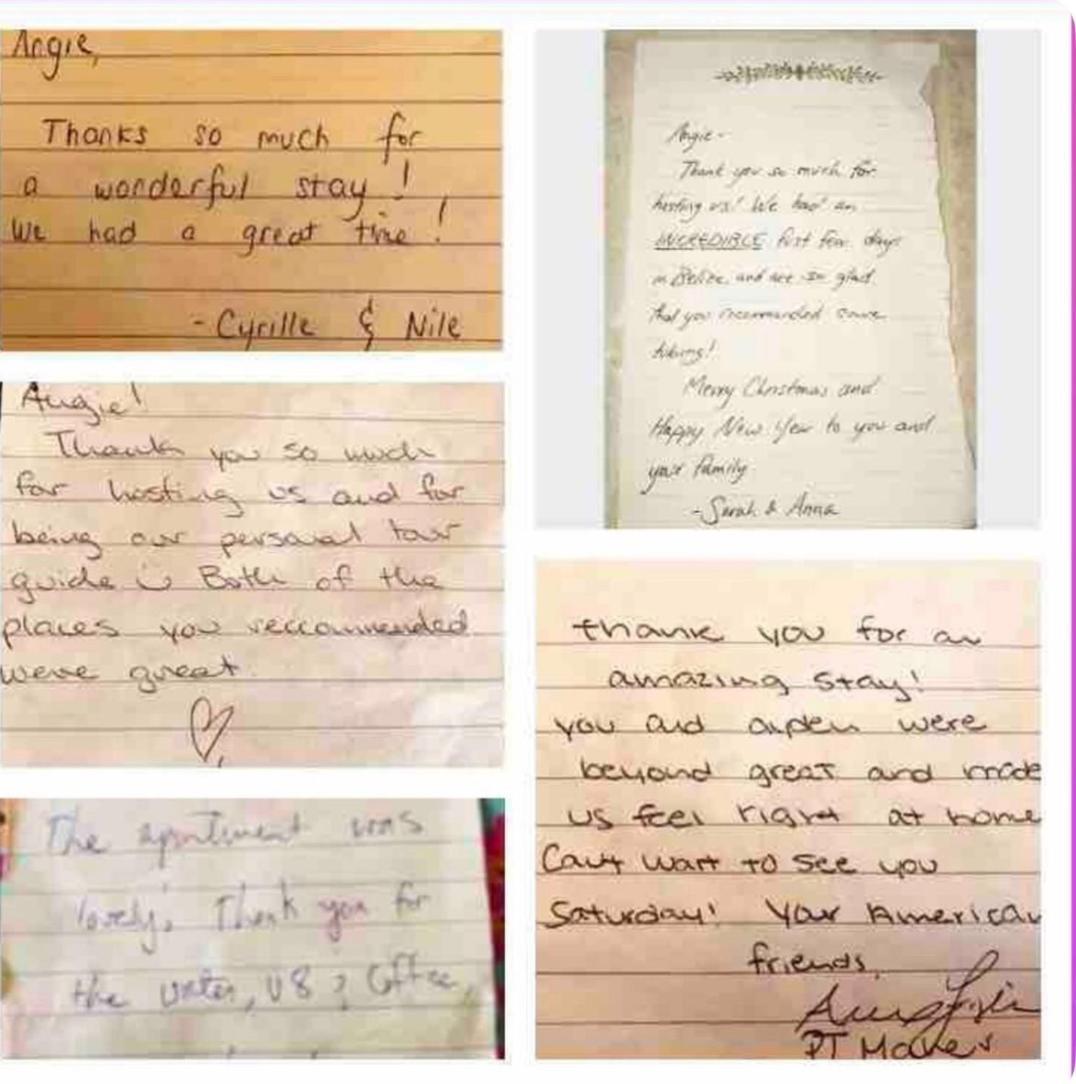 Angie,
Thanks so much for
a wonderful stay!
We had a great time!
- Cyrille & Nile
Angie!
Thank you so much
for hosting us and for
being our personal tour
guide Both of the
places you reccommended
were great.
The apartment was
lovely. Thank you for
the water, V8 & Coffee,
Angie -
Thank you so much for
hosting us! We had an
INCREDIBLE first few days
in Belize and are so glad
that you recommended cave
tubing!
Merry Christmas and
Happy New Year to you and
your family.
- Sarah & Anna
thank you for an
amazing stay!
you and were
beyond great and made
us feel right at home
Can't wait to see you
Saturday! Your American
friends,
PT